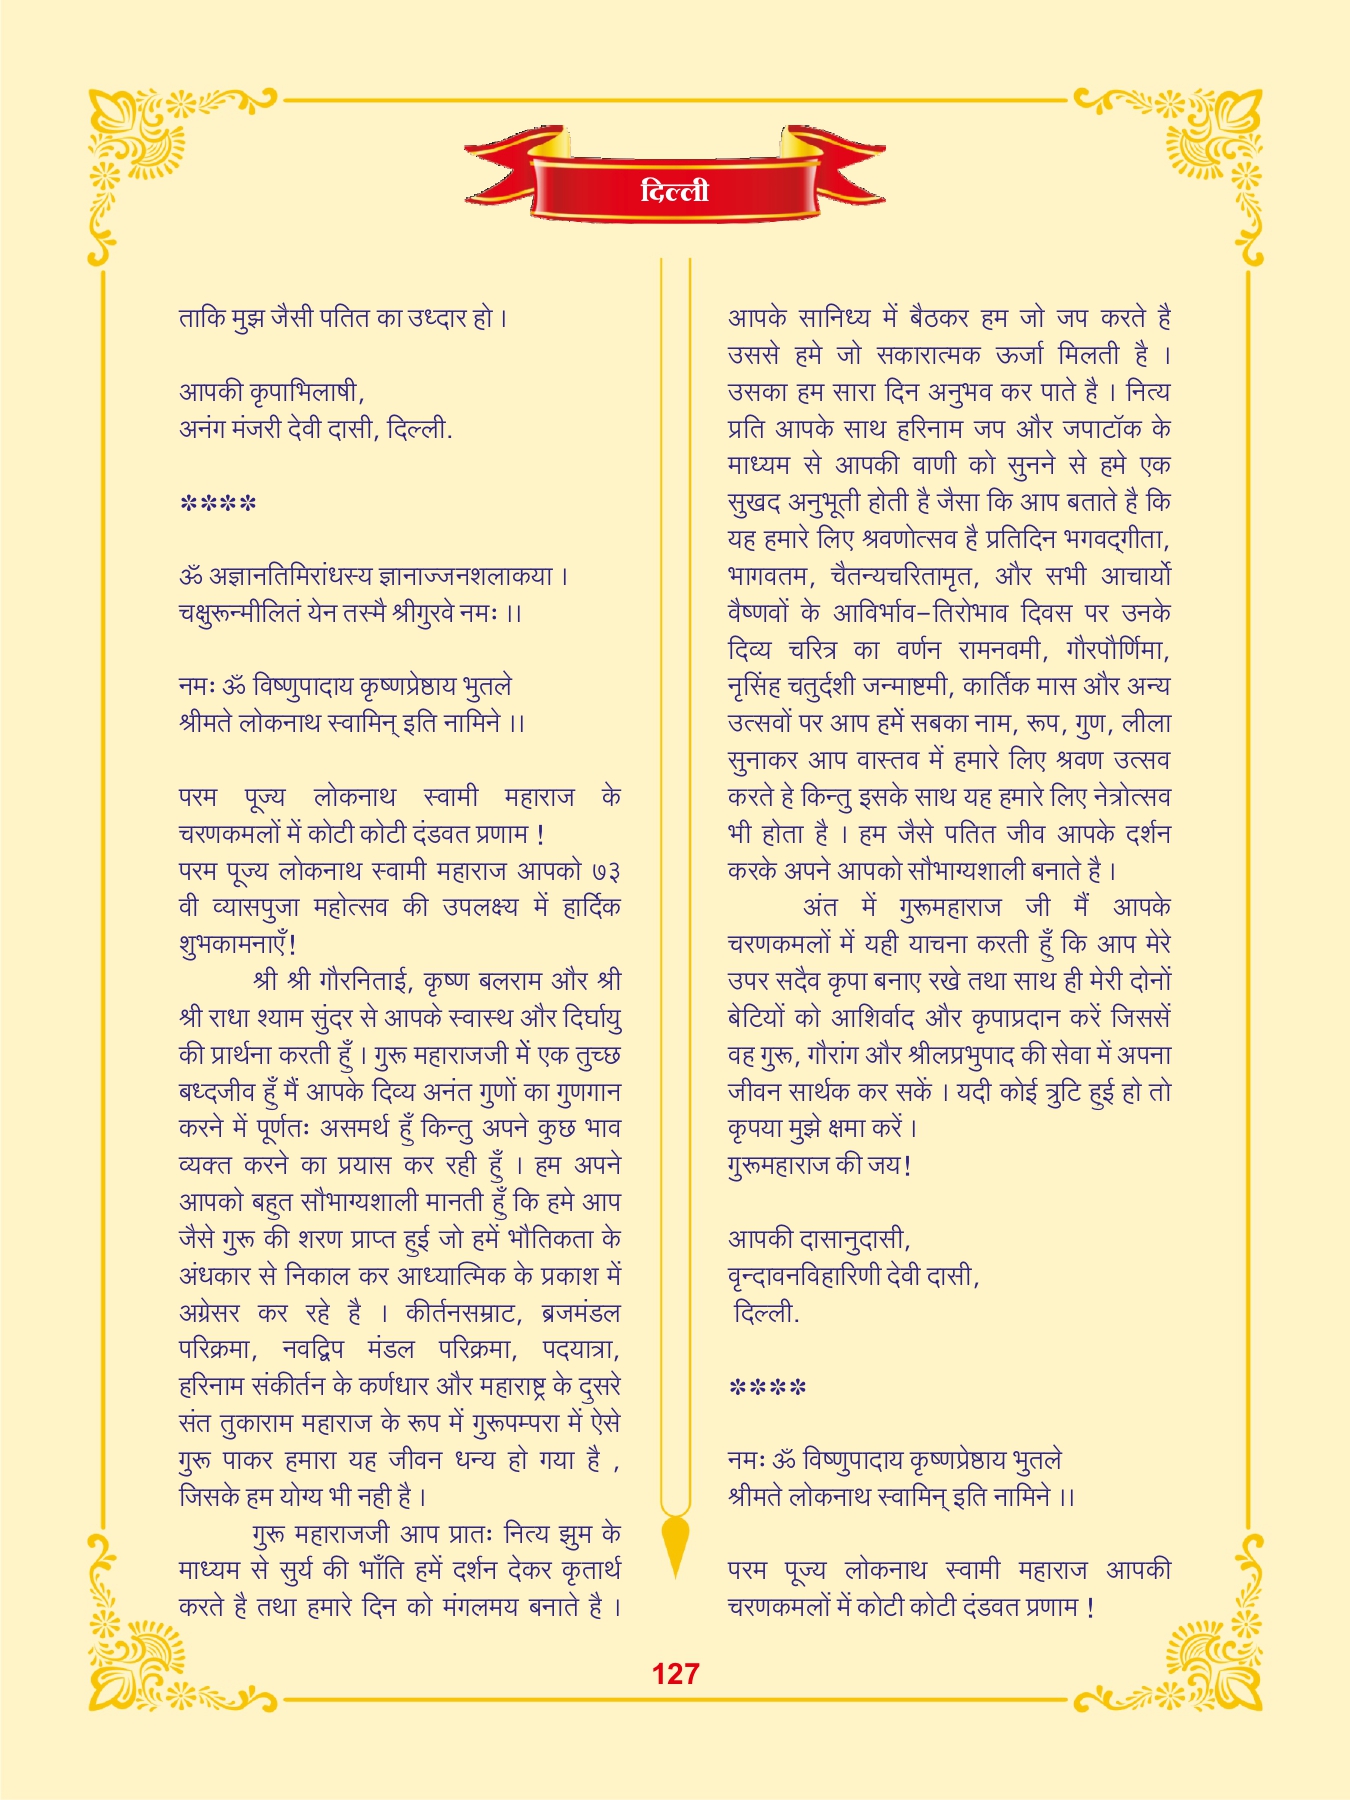 दिल्ली
ताकि मुझ जैसी पतित का उध्दार हो ।
आपकी कृपाभिलाषी,
अनंग मंजरी देवी दासी, दिल्ली.
****
ॐ अज्ञानतिमिरांधस्य ज्ञानाज्जनशलाकया ।
चक्षुरून्मीलितं येन तस्मै श्रीगुरवे नमः ।।
नमः ॐ विष्णुपादाय कृष्णप्रेष्ठाय भुतले
श्रीमते लोकनाथ स्वामिन् इति नामिने ।।
परम पूज्य लोकनाथ स्वामी महाराज के
चरणकमलों में कोटी कोटी दंडवत प्रणाम !
परम पूज्य लोकनाथ स्वामी महाराज आपको ७३
वी व्यासपुजा महोत्सव की उपलक्ष्य में हार्दिक
शुभकामनाएँ!
श्री श्री गौरनिताई, कृष्ण बलराम और श्री
श्री राधा श्याम सुंदर से आपके स्वास्थ और दिर्घायु
की प्रार्थना करती हुँ । गुरू महाराजजी में एक तुच्छ
बध्दजीव हुँ मैं आपके दिव्य अनंत गुणों का गुणगान
करने में पूर्णतः असमर्थ हुँ किन्तु अपने कुछ भाव
व्यक्त करने का प्रयास कर रही हुँ । हम अपने
आपको बहुत सौभाग्यशाली मानती हुँ कि हमे आप
जैसे गुरू की शरण प्राप्त हुई जो हमें भौतिकता के
अंधकार से निकाल कर आध्यात्मिक के प्रकाश में
अग्रेसर कर रहे है । कीर्तनसम्राट, ब्रजमंडल
परिक्रमा, नवद्विप मंडल परिक्रमा, पदयात्रा,
हरिनाम संकीर्तन के कर्णधार और महाराष्ट्र के दुसरे
संत तुकाराम महाराज के रूप में गुरूपम्परा में ऐसे
गुरू पाकर हमारा यह जीवन धन्य हो गया है ,
जिसके हम योग्य भी नही है ।
गुरू महाराजजी आप प्रातः नित्य झुम के
माध्यम से सुर्य की भाँति हमें दर्शन देकर कृतार्थ
करते है तथा हमारे दिन को मंगलमय बनाते है ।
आपके सानिध्य में बैठकर हम जो जप करते है
उससे हमे जो सकारात्मक ऊर्जा मिलती है ।
उसका हम सारा दिन अनुभव कर पाते है । नित्य
प्रति आपके साथ हरिनाम जप और जपाटॉक के
माध्यम से आपकी वाणी को सुनने से हमे एक
सुखद अनुभूती होती है जैसा कि आप बताते है कि
यह हमारे लिए श्रवणोत्सव है प्रतिदिन भगवद्‌गीता,
भागवतम, चैतन्यचरितामृत, और सभी आचार्यो
वैष्णवों के आविर्भाव-तिरोभाव दिवस पर उनके
दिव्य चरित्र का वर्णन रामनवमी, गौरपौर्णिमा,
नृसिंह चतुर्दशी जन्माष्टमी, कार्तिक मास और अन्य
उत्सवों पर आप हमें सबका नाम, रूप, गुण, लीला
सुनाकर आप वास्तव में हमारे लिए श्रवण उत्सव
करते हे किन्तु इसके साथ यह हमारे लिए नेत्रोत्सव
भी होता है । हम जैसे पतित जीव आपके दर्शन
करके अपने आपको सौभाग्यशाली बनाते है ।
अंत में गुरूमहाराज जी मैं आपके
चरणकमलों में यही याचना करती हुँ कि आप मेरे
उपर सदैव कृपा बनाए रखे तथा साथ ही मेरी दोनों
बेटियों को आशिर्वाद और कृपाप्रदान करें जिससें
वह गुरू, गौरांग और श्रीलप्रभुपाद की सेवा में अपना
जीवन सार्थक कर सकें । यदी कोई त्रुटि हुई हो तो
कृपया मुझे क्षमा करें ।
गुरूमहाराज की जय!
आपकी दासानुदासी,
वृन्दावनविहारिणी देवी दासी,
दिल्ली.
****
नमः ॐ विष्णुपादाय कृष्णप्रेष्ठाय भुतले
श्रीमते लोकनाथ स्वामिन् इति नामिने ।।
परम पूज्य लोकनाथ स्वामी महाराज आपकी
चरणकमलों में कोटी कोटी दंडवत प्रणाम !
127